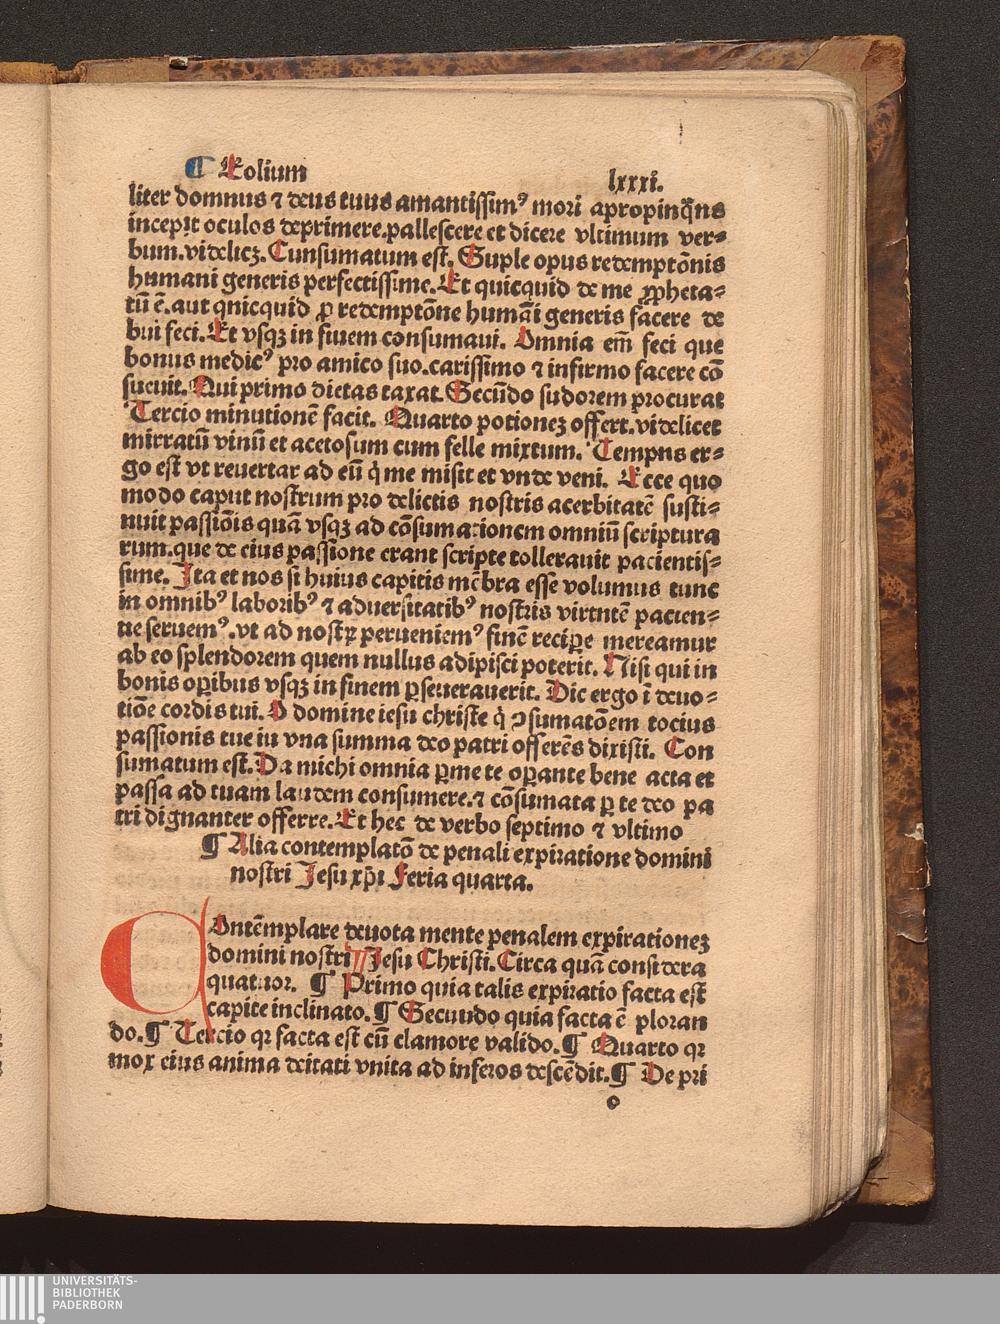 ¶ Folium lxxxi.
liter domnus ⁊ deus tuus amantissimꝰ mori apropinq̃ns
incepit oculos deprimere.pallescere et dicere vltimum ver⸗
bum.videlicꝫ.Cunsumatum est. Suple opus redemptōnis
humani generis perfectissime. Et quicquid de me ꝓpheta⸗
tū ē.aut qnicquid ꝓ redemptōne humāi generis facere de
bui feci. Et vsqꝫ in fiuem consumaui. Omnia em̄ feci que
bonus medicꝰ pro amico suo.carissimo ⁊ infirmo facere cō
sueuit. Qui primo dietas taxat. Secūdo sudorem procurat
Tercio minutionē facit. Quarto potioneꝫ offert.videlicet
mirratū vinū et acetosum cum felle mixtum. Tempns er⸗
go est vt reuertar ad eū q̇ me misit et vnde veni. Ecce quo
modo caput nostrum pro delictis nostris acerbitatē susti⸗
nuit passiōis quā vsqꝫ ad cōsumationem omniū scriptura
rum.que de eius passione erant scripte tollerauit pacientis⸗
sime. Ita et nos si huius capitis mēbra esse volumus tunc
in omnibꝰ laboribꝰ ⁊ aduersitatibꝰ nostris virtntē pacien⸗
tie seruemꝰ.vt ad nostꝝ perueniemꝰ finē recipe mereamur
ab eo splendorem quem nullus adipisci poterit. Nisi qui in
bonis oꝑibus vsqꝫ in finem ꝑseuerauerit. Dic ergo ī deuo⸗
tiōe cordis tui. O domine iesu christe q̇ ꝯsumatōem tocius
passionis tue iu vna summa deo patri offerēs dixisti. Con
sumatum est. Da michi omnia ꝑ me te oꝑante bene acta et
passa ad tuam laudem consumere.⁊ cōsumata ꝑ te deo pa
tri dignanter offerre. Et hec de verbo septimo ⁊ vltimo
¶ Alia contemplatō de penali expiratione domini
nostri Jesu xp̄i Feria quarta.
COntēmplare deuota mente penalem expirationeꝫ
domini nostri Jesu Christi. Circa quā considera
quatuor. ¶ Primo quia talis expiratio facta est
capite inclinato. ¶ Secuudo quia facta ē ploran
do. ¶ Tercio qꝛ facta est cū clamore valido. ¶ Quarto qꝛ
mox eius anima deitati vnita ad inferos descēdit. ¶ De pri
o
UNIVERSITÄTS-
BIBLIOTHEK
PADERBORN